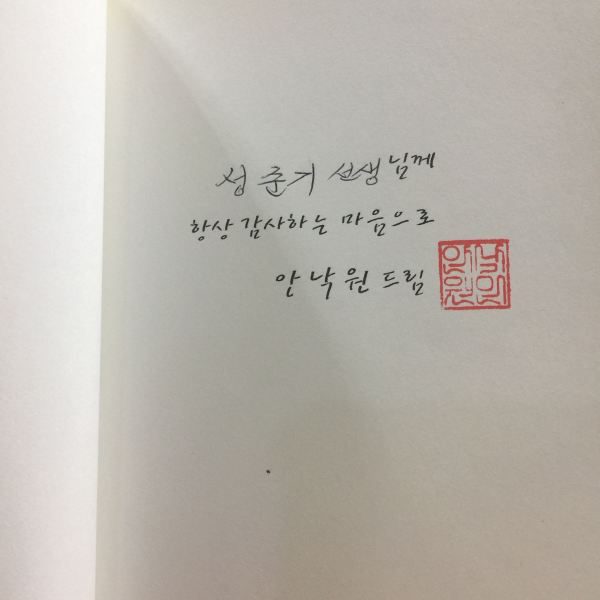 성준기 선생님께
항상 감사하는 마음으로
안낙원 드림